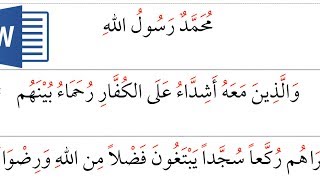 W
مُحَمَّدٌ رَسُولُ اللهِ
وَالَّذِينَ مَعَهُ أَشِدَّاءُ عَلَى الكُفَّارِ رُحَمَاءُ بُيْنَهُم
رَاهُم رُكَّعاً سُجَّداً يَبْتَغُونَ فَضْلاً مِن اللهِ وَرِضْوَا